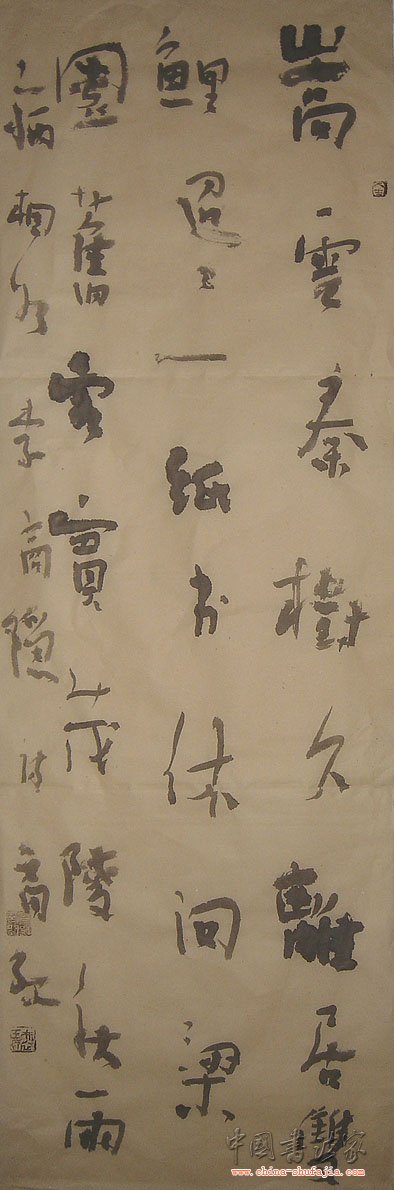 嵩雲秦樹久離居雙
鯉迢〻一紙书休问梁
園舊客賓茂陵秋雨
病相如李商隱诗
中國書法家
www.china-shufajia.com